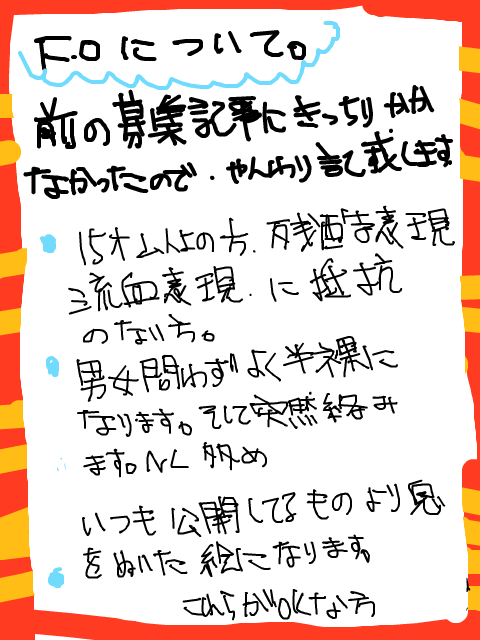 F.Oについて。
前の募集記事にきっちりかか
なかったので、やんわり記載します
15才以上の方、残酷な表現
流血表現、に抵抗
のない方。
男女問わずよく半裸に
なります。そして突然絡み
ます。NL多め
いつも公開してるものより息
をぬいた絵になります。
これらがOKな方